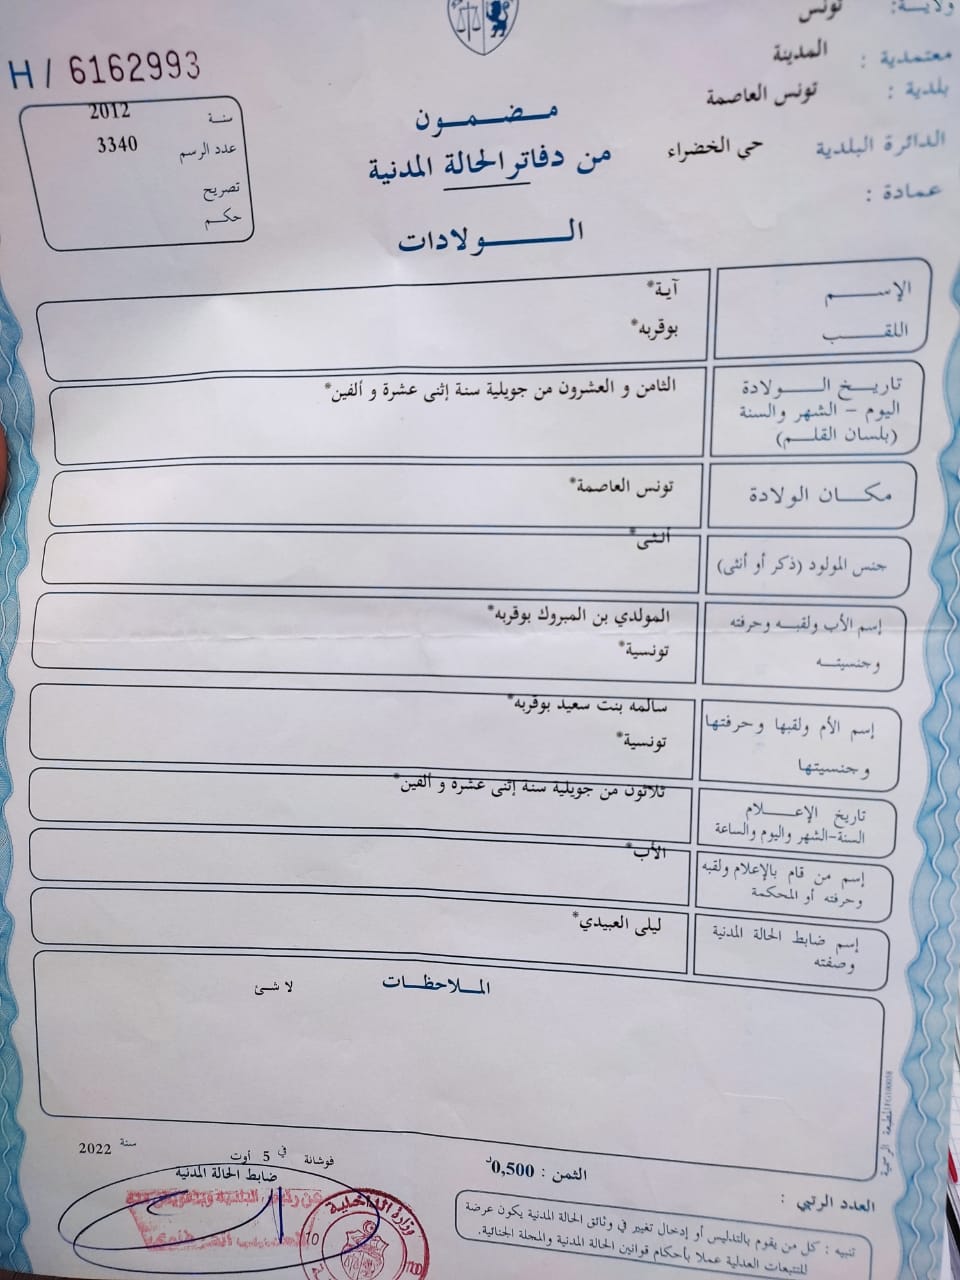 ولايـة: تونس
معتمدية : المدينة
بلدية : تونس العاصمة
الدائرة البلدية حي الخضراء
عمادة :
H / 6162993
سنة 2012
عدد الرسم 3340
تصريح
حكـم
مـضـمـون
من دفاتر الحالة المدنية
الـولادات
الإسـم آية*
اللقـب بوقربه*
تاريـخ الـولادة الثامن و العشرون من جويلية سنة إثنى عشرة و ألفين*
اليوم – الشهر والسنة
(بلسان القلـم)
مكـان الولادة تونس العاصمة*
جنس المولود (ذكر أو أنثى) أنثى*
إسم الأب ولقبـه وحرفته المولدي بن المبروك بوقربه*
وجنسيتـه تونسية*
إسم الأم ولقبها وحرفتها سالمه بنت سعيد بوقربه*
وجنسيتها تونسية*
تاريخ الإعـلام ثلاثون من جويلية سنة إثنى عشرة و ألفين*
السنة-الشهر واليوم والساعة
إسم من قام بالإعلام ولقبه الأب*
وحرفته أو المحكمة
إسم ضابط الحالة المدنية ليلى العبيدي*
وصفته
المـلاحظـات
لا شئ
المطبعة الرسمية
فوشانة في 5 أوت سنة 2022
ضابط الحالة المدنية
الثمن : 0,500د
العدد الرتبي :
تنبيه : كل من يقوم بالتدليس أو إدخال تغيير في وثائق الحالة المدنية يكون عرضة
للتتبعات العدلية عملا بأحكام قوانين الحالة المدنية والمجلة الجنائية.
وزارة الداخلية